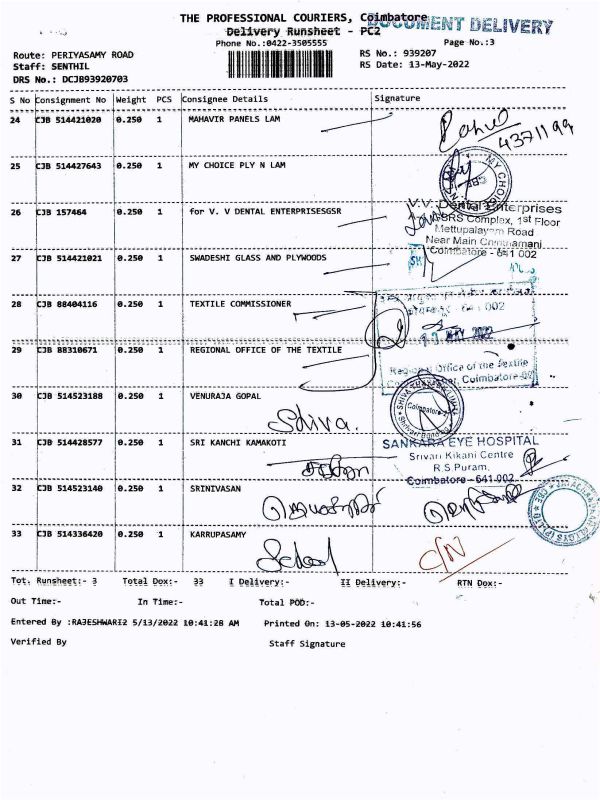 THE PROFESSIONAL COURIERS, Coimbatore
DOCUMENT DELIVERY
Delivery Runsheet - PC2
Phone No.:0422-3505555
Page No.:3
Route: PERIYASAMY ROAD
RS No.: 939207
Staff: SENTHIL
RS Date: 13-May-2022
DRS No.: DCJB93920703
S No Consignment No Weight PCS Consignee Details Signature
24 CJB 514421020 0.250 1 MAHAVIR PANELS LAM
Rahul
4371199
25 CJB 514427643 0.250 1 MY CHOICE PLY N LAM
MY CHOICE
26 CJB 157464 0.250 1 for V. V DENTAL ENTERPRISESGSR
V.V. Dental Enterprises
GRS Complex, 1st Floor
Mettupalayam Road
Near Main Chinthamani
Coimbatore - 641 002
27 CJB 514421021 0.250 1 SWADESHI GLASS AND PLYWOODS
28 CJB 88404116 0.250 1 TEXTILE COMMISSIONER
641 002
29 CJB 88310671 0.250 1 REGIONAL OFFICE OF THE TEXTILE
Regional Office of the Textile
Coimbatore
30 CJB 514523188 0.250 1 VENURAJA GOPAL
Shiva.
Coimbatore-2
31 CJB 514428577 0.250 1 SRI KANCHI KAMAKOTI
SANKARA EYE HOSPITAL
Srivari Kikani Centre
R.S.Puram,
Coimbatore - 641 002
32 CJB 514523140 0.250 1 SRINIVASAN
33 CJB 514336420 0.250 1 KARRUPASAMY
C/N
Tot. Runsheet:- 3 Total Dox:- 33 I Delivery:- II Delivery:- RTN Dox:-
Out Time:- In Time:- Total POD:-
Entered By :RAJESHWARI2 5/13/2022 10:41:28 AM Printed On: 13-05-2022 10:41:56
Verified By Staff Signature